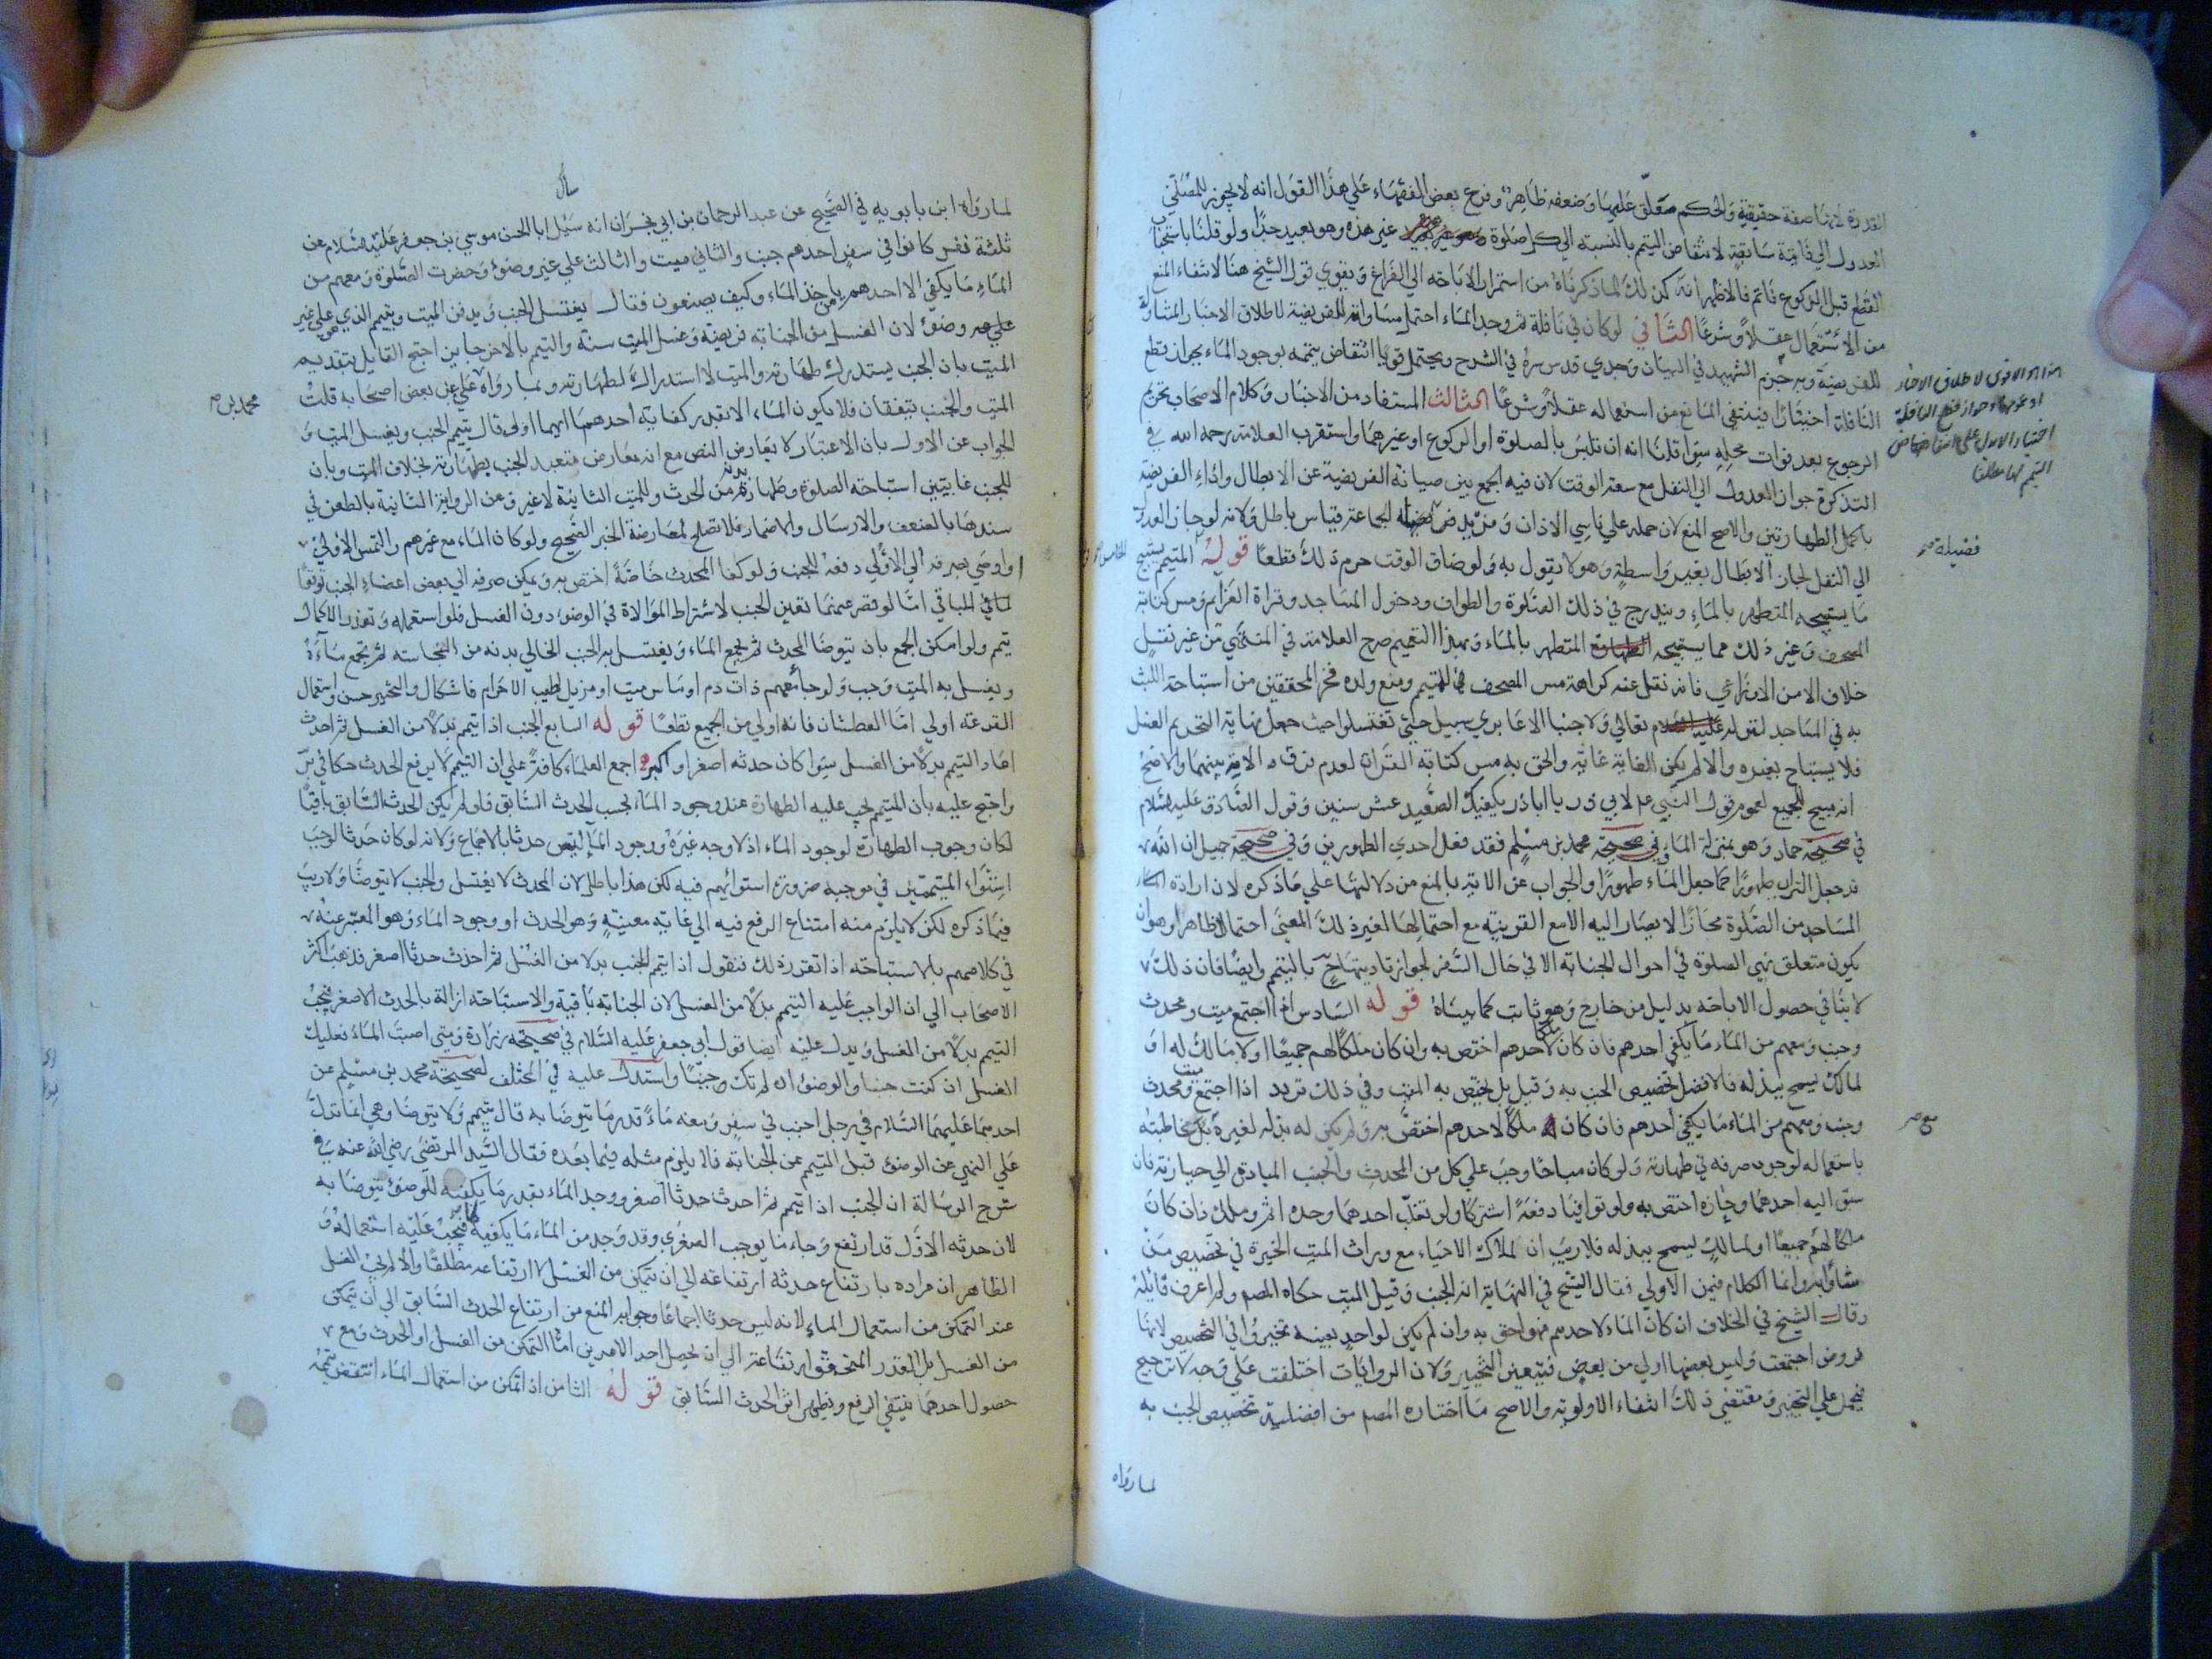 القدرة لانها صفة حقيقية والحكم معلق عليها وضعفه ظاهر وفرع بعض الفقهاء على هذا القول انه لا يجوز للمصلي
العدول الى فائتة سابقة لانتقاض التيمم بالنسبة الى كل صلوة غير هذه وهو بعيد جدا ولو قلنا باستحباب
القطع قبل الركوع فاتم فالاظهر انه كذلك لما ذكرناه من استمرار الاباحة الى الفراغ ويقوي قول الشيخ هنا لانتفاء المنع
من الاستعمال عقلا وشرعا الثاني لو كان في نافلة ثم وجد الماء احتمل مساواته للفريضة لاطلاق الاخبار المتناولة
للفريضة وبه جزم الشهيد في البيان وجدي قدس سره في الشرح ويحتمل قويا انتقاض تيممه بوجود الماء بجواز قطع
النافلة اختيارا فينتفي المانع من استعماله عقلا وشرعا الثالث المستفاد من الاخبار وكلام الاصحاب تحريم
الرجوع بعد فوات محله سوا قلنا انه ان تلبس بالصلوة او الركوع او غيرهما واستقرب العلامة رحمه الله في
التذكرة جواز العدول الى النفل مع سعة الوقت لان فيه الجمع بين صيانة الفريضة عن الابطال واداء الفريضة
باكمل الطهارتين والاصح المنع لان حمله على ناسي الاذان ومن يريد فضيلة الجماعة قياس باطل ولانه لو جاز العدول
الى النفل لجاز الابطال بغير واسطة وهو لا يقول به ولو ضاق الوقت حرم ذلك قطعا قوله المتيمم يستبيح
ما يستبيحه المتطهر بالماء ويندرج في ذلك الصلوة والطواف ودخول المساجد وقراة العزايم ومس كتابة
المصحف وغير ذلك مما يستبيحه المتطهر بالماء وبهذا التعميم صرح العلامة في المنتهى من غير نقل
خلاف الا من الاوزاعي فانه نقل عنه كراهة مس المصحف للمتيمم ومنع ولده فخر المحققين من استباحة اللبث
به في المساجد لقوله تعالى ولا جنبا الا عابري سبيل حتى تغتسلوا حيث جعل نهاية التحريم الغسل
فلا يستباح بغيره والا لم يكن الغاية غاية والحق به مس كتابة القران لعدم فرق الامة بينهما والاصح
انه يبيح الجميع لعموم قول النبي ع لابي ذر يا اباذر يكفيك الصعيد عشر سنين وقول الصادق عليه السلام
في صحيحة حماد وهو بمنزلة الماء وفي صحيحة محمد بن مسلم فقد فعل احدى الطهورين وفي صحيحة جميل ان الله
قد جعل التراب طهورا كما جعل الماء طهورا والجواب عن الاية بالمنع من دلالتها على ما ذكره لان ارادة
المساجد من الصلوة مجازا لا يصار اليه الا مع القرينة مع احتمالها لغير ذلك المعنى احتمالا ظاهرا وهو ان
يكون متعلق نهي الصلوة في احوال الجنابة الا في حال السفر لجواز تاديتها ح بالتيمم وايضا فان ذلك
لا ينافي حصول الاباحة بدليل من خارج وهو ثابت كما بيناه قوله السادس اذا اجتمع ميت ومحدث
وجنب ومعهم من الماء ما يكفي احدهم فان كان ملكا لاحدهم اختص به وان كان ملكا لهم جميعا او لا مالك له او
لمالك يسمح ببذله فالافضل تخصيص الجنب به وقيل بل يختص به الميت وفي ذلك تردد اذا اجتمع ميت ومحدث
وجنب ومعهم من الماء ما يكفي احدهم فان كان ملكا لاحدهم اختص به ولم يكن له بذله لغيره مع مخاطبته
باستعماله لوجوب صرفه في طهارته ولو كان مباحا وجب على كل من المحدث والجنب المبادرة الى حيازته فان
سبق اليه احدهما وحازه اختص به ولو توافيا دفعة اشتركا ولو تغلب احدهما وحده اثم وملك فان كان
ملكا لهم جميعا او لمالك يسمح ببذله فلا ريب ان لملاك الاحياء مع وراث الميت الخيرة في تخصيص من
شاؤا به وانما الكلام فيمن الاولى فقال الشيخ في النهاية انه الجنب وقيل الميت حكاه المصم ولم اعرف قائله
وقال الشيخ في الخلاف ان كان الماء لاحدهم فهو احق به وان لم يكن لواحد بعينه تخيروا في التخصيص لانها
فروض اجتمعت وليس بعضها اولى من بعض فتيعين التخيير ولان الروايات اختلفت على وجه لا ترجيح
فيحمل على التخيير ومقتضى ذلك انتفاء الاولوية والاصح ما اختاره المصم من افضلية تخصيص الجنب به
لما رواه
هذا هو الاقوى لاطلاق الاخبار
فضيلة صح
مع صح
لما رواه ابن بابويه في الصحيح عن عبد الرحمان بن ابي نجران انه سئل ابا الحسن موسى بن جعفر عليه السلام عن
سأل
ثلثة نفر كانوا في سفر احدهم جنب والثاني ميت والثالث على غير وضوء وحضرت الصلوة ومعهم من
الماء ما يكفي الا احدهم من يأخذ الماء وكيف يصنعون فقال يغتسل الجنب ويدفن الميت ويتيمم الذي هو على غير
وضوء لان الغسل من الجنابة فريضة وغسل الميت سنة والتيمم بالاخر جايز احتج القايل بتقديم
الميت بان الجنب يستدرك طهارته والميت لا استدراك لطهارته وبما رواه علي عن بعض اصحابه قلت
الميت والجنب يتفقان فلا يكون الماء الا بقدر كفاية احدهما ايهما اولى قال يتيمم الجنب ويغسل الميت و
الجواب عن الاول بان الاعتبار لا يعارض النص مع انه معارض بتعبد الجنب بطهارته بخلاف الميت وبان
للجنب غايتين استباحة الصلوة وطهارة بدنه من الحدث وللميت الثانية لا غير وعن الرواية الثانية بالطعن في
سندها بالضعف والارسال والاضمار فلا تصلح لمعارضة الخبر الصحيح ولو كان الماء مع غيرهم والتمس الاولى
او اوصى بصرفه الى الاولى دفعه للجنب ولو كفا المحدث خاصة اختص به ويمكن صرفه الى بعض اعضاء الجنب توقعا
لما في الباقي اما لو قصر عنهما تعين الجنب لاشتراط الموالاة في الوضوء دون الغسل فلو استعمله وتعذر الاكمال
يتمم ولو امكن الجمع بان يتوضا المحدث ثم يجمع الماء ويغتسل به الجنب الخالي بدنه من النجاسة ثم يجمع ماءه
ويغسل به الميت وجب ولو جامعهم ذات دم او ماس ميت او مزيل لطيب الاحرام فاشكال والتخيير حسن واستعمال
القرعة اولى اما العطشان فانه اولى من الجميع قطعا قوله السابع الجنب اذا تيمم بدلا من الغسل ثم احدث
اعاد التيمم بدلا من الغسل سوا كان حدثه اصغر او اكبر اجمع العلماء كافة على ان التيمم لا يرفع الحدث حكا في
واحتج عليه بان المتيمم يجب عليه الطهارة عند وجود الماء بحسب الحدث السابق فلو لم يكن الحدث السابق باقيا
لكان وجوب الطهارة لوجود الماء اذ لا وجه غيره ووجود الماء ليس حدثا بالاجماع ولانه لو كان حدثا لوجب
استواء المتيممين في موجبه ضرورة استوائهم فيه لكن هذا باطل لان المحدث لا يغتسل والجنب لا يتوضا ولا ريب
فيما ذكره لكن لا يلزم منه امتناع الرفع فيه الى غاية معينة وهو الحدث او وجود الماء وهو المعبر عنه
في كلامهم بالاستباحة اذا تقرر ذلك فنقول اذا تيمم الجنب بدلا من الغسل ثم احدث حدثا اصغر فذهب اكثر
الاصحاب الى ان الواجب عليه التيمم بدلا من الغسل لان الجنابة باقية والاستباحة ازالة بالحدث الاصغر فيجب
التيمم بدلا من الغسل ويدل عليه ايضا قول ابي جعفر عليه السلام في صحيحة زرارة ومتى اصبت الماء فعليك
الغسل ان كنت جنبا والوضوء ان لم تك جنبا واستدل عليه في المختلف لصحيحة محمد بن مسلم عن
احدهما عليهما السلام في رجل اجنب في سفر ومعه ماء قدر ما يتوضا به قال يتيمم ولا يتوضا وهي انما تدل
على النهي عن الوضوء قبل التيمم عن الجنابة فلا يلزم مثله فيما بعده فقال السيد المرتضى رضي الله عنه في
شرح الرسالة ان الجنب اذا تيمم ثم احدث حدثا اصغر ووجد الماء بقدر ما يكفيه للوضوء توضا به
لان حدثه الاول قد ارتفع وجاء ما يوجب الصغرى وقد وجد من الماء ما يكفيه لها فيجب عليه استعماله و
الظاهر ان مراده بارتفاع حدثه ارتفاعه الى ان يتمكن من الغسل لا ارتفاعه مطلقا والا لم يجب الغسل
عند التمكن من استعمال الماء لانه ليس حدثا اجماعا وجوابه المنع من ارتفاع الحدث السابق الى ان يتمكن
من الغسل بل القدر المتحقق ارتفاعه الى ان يحصل احد الامرين اما التمكن من الغسل او الحدث ومع
حصول احدهما ينتفي الرفع ويظهر اثر الحدث السابق قوله الثامن اذا تمكن من استعمال الماء انتقض تيممه
محمد بن صح